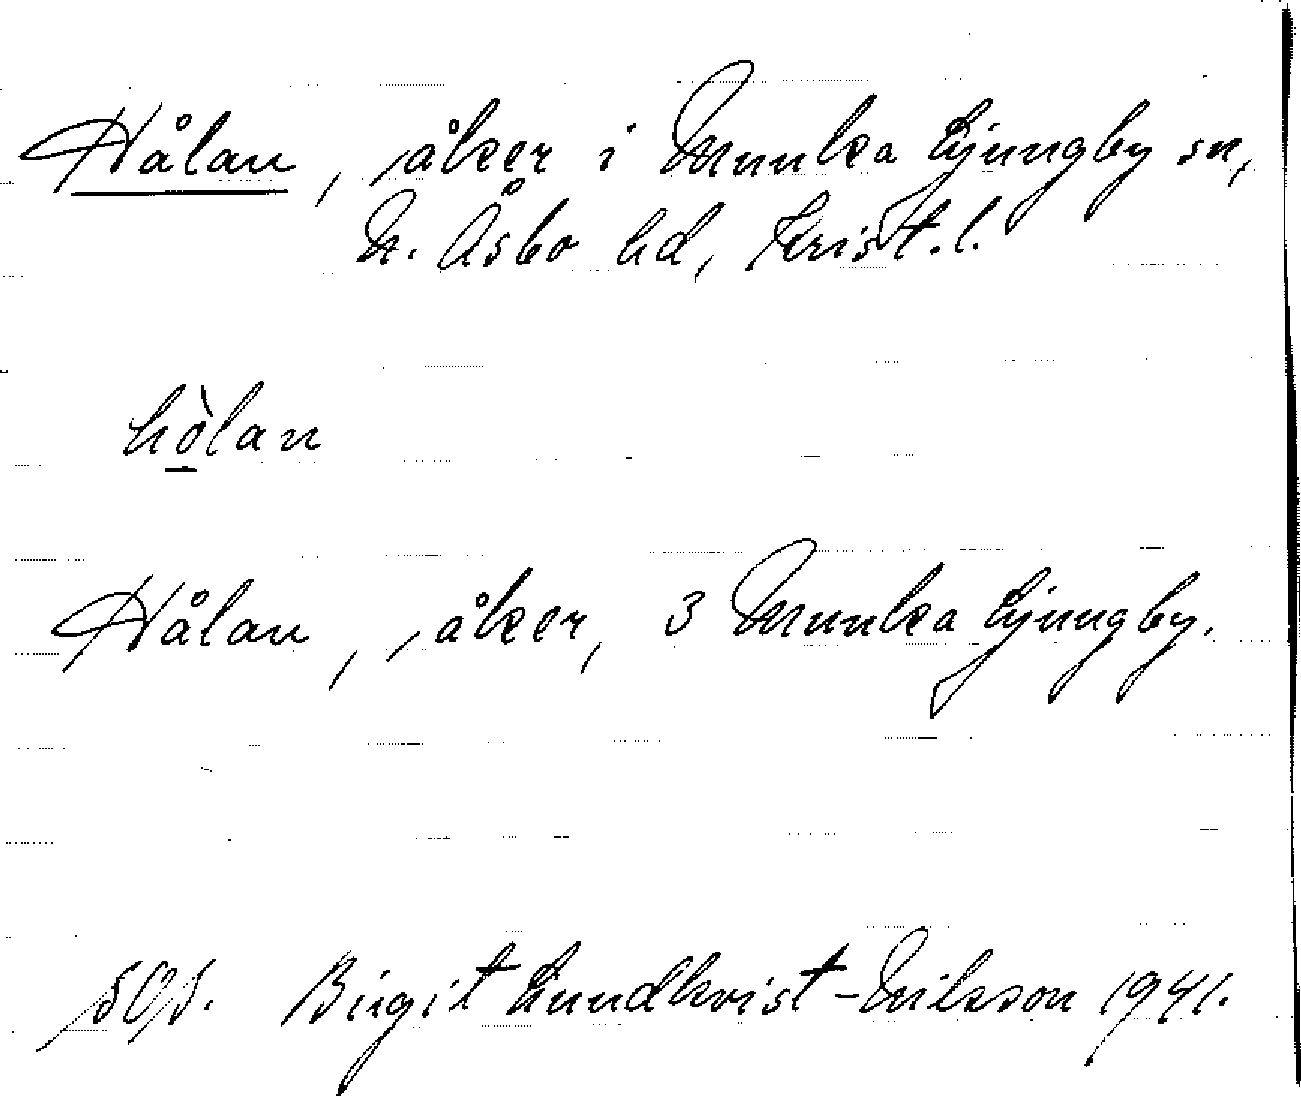 Hålan, åker i Munka Ljungby sn,
N. Åsbo hd, Krist. l.
hò̲lan
Hålan, åker, 3 Munka Ljungby.
Birgit Lundkvist-Nilsson 1941.